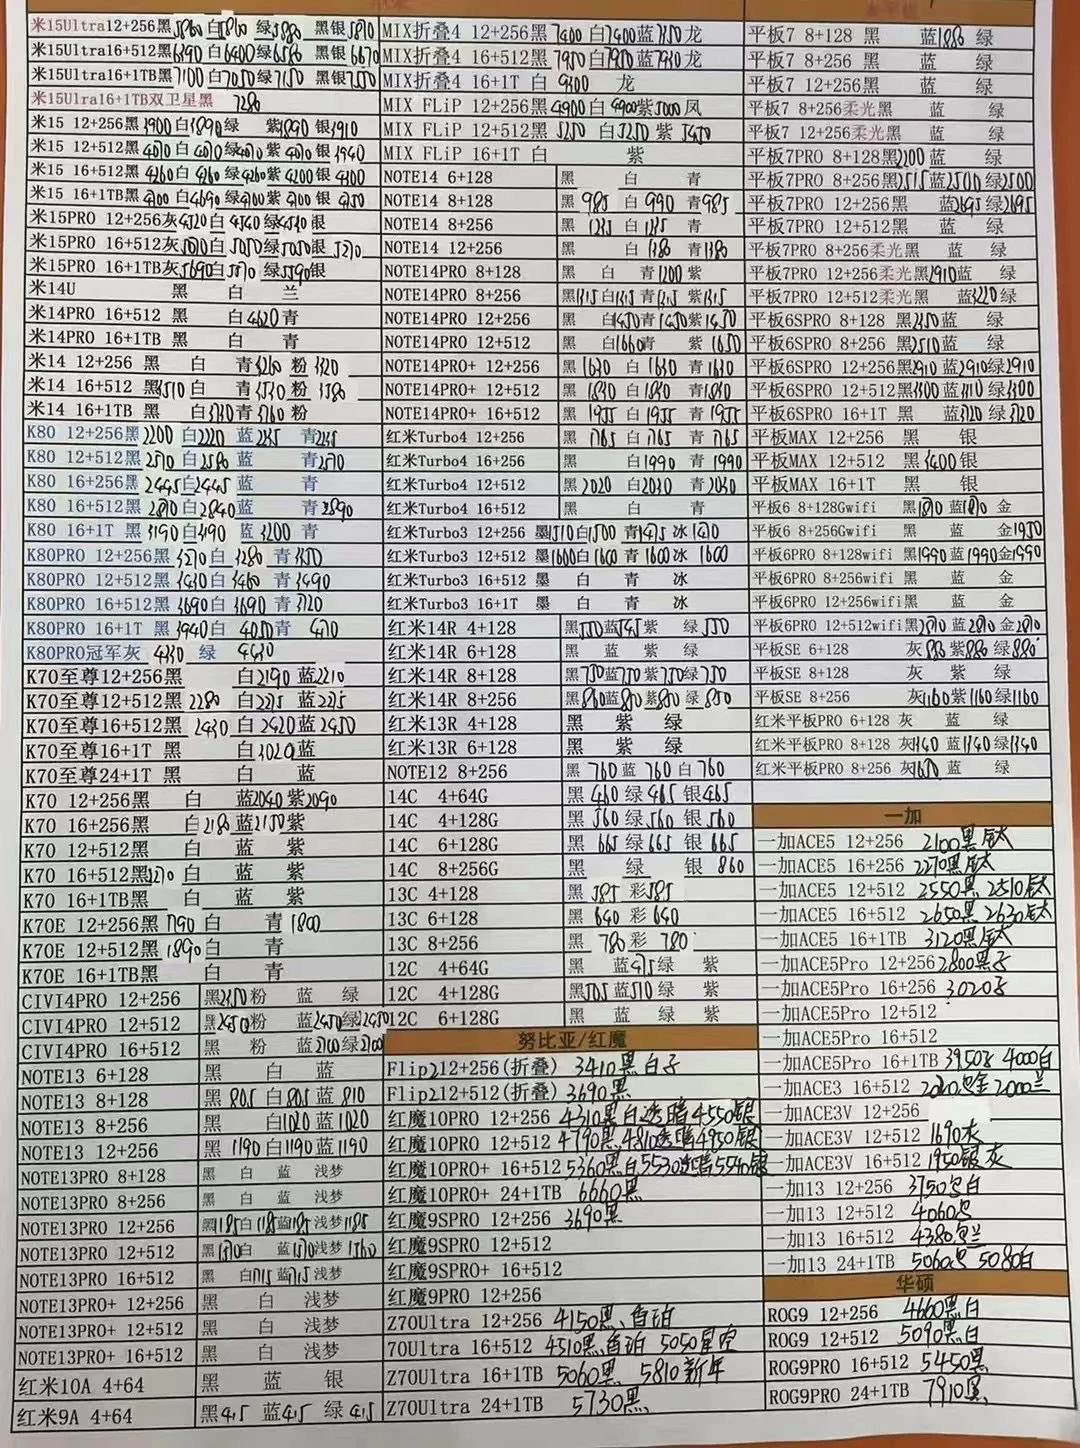 米15Ultra12+256黑5860白5860绿5880 黑银5810
米15Ultra16+512黑6390白6400绿6580 黑银6670
米15Ultra16+1TB黑7100白7050绿7150 黑银7350
米15Ulra16+1TB双卫星黑 7280
米15 12+256黑3900白3890绿 紫3890银3910
米15 12+512黑4010白4010绿4010紫4010银3940
米15 16+512黑4260白4260绿4260紫4200银4300
米15 16+1TB黑 白4690绿 紫 银
米15PRO 12+256灰4520白4540绿4530银
米15PRO 16+512灰 白5050绿5050银5270
米15PRO 16+1TB灰5690白 绿5590银
米14U 黑 白 兰
米14PRO 16+512 黑 白4620青
米14PRO 16+1TB 黑 白 青
米14 12+256 黑 白 青3260粉3320
米14 16+512 黑3510白 青3530粉3580
米14 16+1TB 黑 白 青3760粉
K80 12+256黑2200白2220蓝2235 青2235
K80 12+512黑2570白2580蓝 青2570
K80 16+256黑2445白2445蓝 青
K80 16+512黑 白2840蓝 青2890
K80 16+1T 黑3190白3190蓝3200青
K80PRO 12+256黑3270白3280青3350
K80PRO 12+512黑3430白3460青3490
K80PRO 16+512黑3690白3690青3720
K80PRO 16+1T 黑3940白4050青
K80PRO冠军灰 4330 绿 4430
K70至尊12+256黑 白2190蓝2210
K70至尊12+512黑2280白2275蓝2275
K70至尊16+512黑2430白2420蓝2450
K70至尊16+1T 黑 白3020蓝
K70至尊24+1T 黑 白 蓝
K70 12+256黑 白 蓝2040紫2090
K70 16+256黑 白2180蓝2150紫
K70 12+512黑 白 蓝 紫
K70 16+512黑2270白 蓝 紫
K70 16+1TB黑 白 蓝 紫
K70E 12+256黑1790白 青1800
K70E 12+512黑1890白 青
K70E 16+1TB黑 白 青
CIVI4PRO 12+256 黑2350粉 蓝 绿
CIVI4PRO 12+512 黑2450粉 蓝2450绿2450
CIVI4PRO 16+512 黑 粉 蓝2700绿2700
NOTE13 6+128 黑 白 蓝
NOTE13 8+128 黑805白805蓝810
NOTE13 8+256 黑 白1020蓝1020
NOTE13 12+256 黑1190白1190蓝1190
NOTE13PRO 8+128 黑 白 蓝 浅梦
NOTE13PRO 8+256 黑 白 蓝 浅梦
NOTE13PRO 12+256 黑1185白1185蓝1185浅梦1185
NOTE13PRO 12+512 黑1370白 蓝1370浅梦1360
NOTE13PRO 16+512 黑 白1715蓝1715浅梦
NOTE13PRO+ 12+256 黑 白 浅梦
NOTE13PRO+ 12+512 黑 白 浅梦
NOTE13PRO+ 16+512 黑 白 浅梦
红米10A 4+64 黑 蓝 银
红米9A 4+64 黑415蓝415绿415
MIX折叠4 12+256黑7400白7400蓝7450龙
MIX折叠4 16+512黑7950白7950蓝7930龙
MIX折叠4 16+1T 白 9300 龙
MIX FLiP 12+256黑4900白4900紫5000凤
MIX FLiP 12+512黑5250 白5250紫5450
MIX FLiP 16+1T 白 紫
NOTE14 6+128 黑 白 青
NOTE14 8+128 黑985白990青985
NOTE14 8+256 黑1235白1235青
NOTE14 12+256 黑 白1380青1380
NOTE14PRO 8+128 黑 白 青1200紫
NOTE14PRO 8+256 黑1315白1315青1315紫1315
NOTE14PRO 12+256 黑 白1450青1450紫1450
NOTE14PRO 12+512 黑 白1660青 紫1650
NOTE14PRO+ 12+256 黑1630白1630青1630
NOTE14PRO+ 12+512 黑1830白1830青1830
NOTE14PRO+ 16+512 黑1955白1955青1955
红米Turbo4 12+256 黑1765白1765青1765
红米Turbo4 16+256 黑 白1990青1990
红米Turbo4 12+512 黑2020白2030青2030
红米Turbo4 16+512 黑 白 青
红米Turbo3 12+256 墨1510白1500青1475冰1470
红米Turbo3 12+512 墨1600白1600青1600冰1600
红米Turbo3 16+512 墨 白 青 冰
红米Turbo3 16+1T 墨 白 青 冰
红米14R 4+128 黑550蓝545紫 绿550
红米14R 6+128 黑 蓝 紫 绿
红米14R 8+128 黑750蓝750紫750绿750
红米14R 8+256 黑860蓝850紫850绿850
红米13R 4+128 黑 紫 绿
红米13R 6+128 黑 紫 绿
NOTE12 8+256 黑760蓝760白760
14C 4+64G 黑460绿465银465
14C 4+128G 黑560绿560银560
14C 6+128G 黑665绿665银665
14C 8+256G 黑 绿 银860
13C 4+128 黑585彩585
13C 6+128 黑640彩640
13C 8+256 黑780彩780
12C 4+64G 黑 蓝475绿 紫
12C 4+128G 黑505蓝510绿 紫
12C 6+128G 黑 蓝 绿 紫
努比亚/红魔
Flip212+256(折叠) 3410黑白子
Flip212+512(折叠) 3690黑
红魔10PRO 12+256 4310黑白透暗4550银
红魔10PRO 12+512 4790黑4810透暗4950银
红魔10PRO+ 16+512 5360黑白5530透暗5590银
红魔10PRO+ 24+1TB 6660黑
红魔9SPRO 12+256 3690黑
红魔9SPRO 12+512
红魔9SPRO+ 16+512
红魔9PRO 12+256
Z70Ultra 12+256 4150黑、自珀
70Ultra 16+512 4510黑自珀 5050星空
Z70Ultra 16+1TB 5060黑 5810新年
Z70Ultra 24+1TB 5730黑
平板7 8+128 黑 蓝1880绿
平板7 8+256 黑 蓝 绿
平板7 12+256 黑 蓝 绿
平板7 8+256柔光黑 蓝 绿
平板7 12+256柔光黑 蓝 绿
平板7PRO 8+128黑2200蓝 绿
平板7PRO 8+256黑2515蓝2500绿2500
平板7PRO 12+256黑 蓝2695绿2695
平板7PRO 12+512黑 蓝 绿
平板7PRO 8+256柔光黑 蓝 绿
平板7PRO 12+256柔光黑2910蓝 绿
平板7PRO 12+512柔光黑 蓝3220绿
平板6SPRO 8+128 黑2350蓝 绿
平板6SPRO 8+256 黑2510蓝 绿
平板6SPRO 12+256黑2910蓝2910绿2910
平板6SPRO 12+512黑3300蓝3310绿3300
平板6SPRO 16+1T 黑 蓝3720绿3720
平板MAX 12+256 黑 银
平板MAX 12+512 黑3400银
平板MAX 16+1T 黑 银
平板6 8+128Gwifi 黑 蓝 金
平板6 8+256Gwifi 黑 蓝 金1950
平板6PRO 8+128wifi 黑1990蓝1990金1990
平板6PRO 8+256wifi 黑 蓝 金
平板6PRO 12+256wifi黑 蓝 金
平板6PRO 12+512wifi黑2810蓝2810金2810
平板SE 6+128 灰880紫880绿880
平板SE 8+128 灰 紫 绿
平板SE 8+256 灰1160紫1160绿1160
红米平板PRO 6+128 灰 蓝 绿
红米平板PRO 8+128 灰1340蓝1340绿1340
红米平板PRO 8+256 灰1650蓝 绿
一加
一加ACE5 12+256 2100黑钛
一加ACE5 16+256 2270黑钛
一加ACE5 12+512 2550黑2510钛
一加ACE5 16+512 2650黑2630钛
一加ACE5 16+1TB 3120黑钛
一加ACE5Pro 12+256 2800黑子
一加ACE5Pro 16+256 3020子
一加ACE5Pro 12+512
一加ACE5Pro 16+512
一加ACE5Pro 16+1TB 3950子 4000白
一加ACE3 16+512 2000兰
一加ACE3V 12+256
一加ACE3V 12+512 1690灰
一加ACE3V 16+512 1950银灰
一加13 12+256 3750 白
一加13 12+512 4060
一加13 16+512 4380 兰
一加13 24+1TB 5060 5080白
华硕
ROG9 12+256 4660黑白
ROG9 12+512 5090黑白
ROG9PRO 16+512 5450黑
ROG9PRO 24+1TB 7910黑